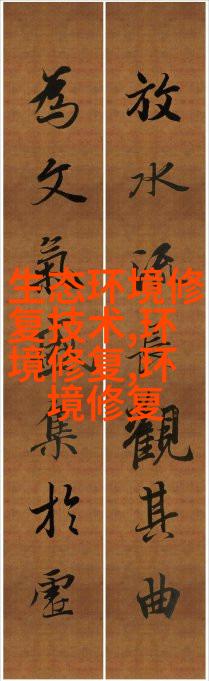 放水長觀其曲
為文氣集於虛
生态环境修
复技术,环
境修复,环
境修复